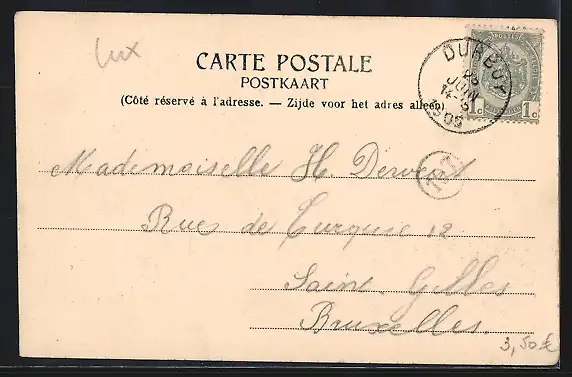 lux
CARTE POSTALE
POSTKAART
(Côté réservé à l'adresse. — Zijde voor het adres alleen)
DURBUY
JUIN
14-15
1905
1c. 1c.
Mademoiselle H. Dervent
Rue de Turquie 12
Saint. Gilles
Bruxelles.
3,50 €